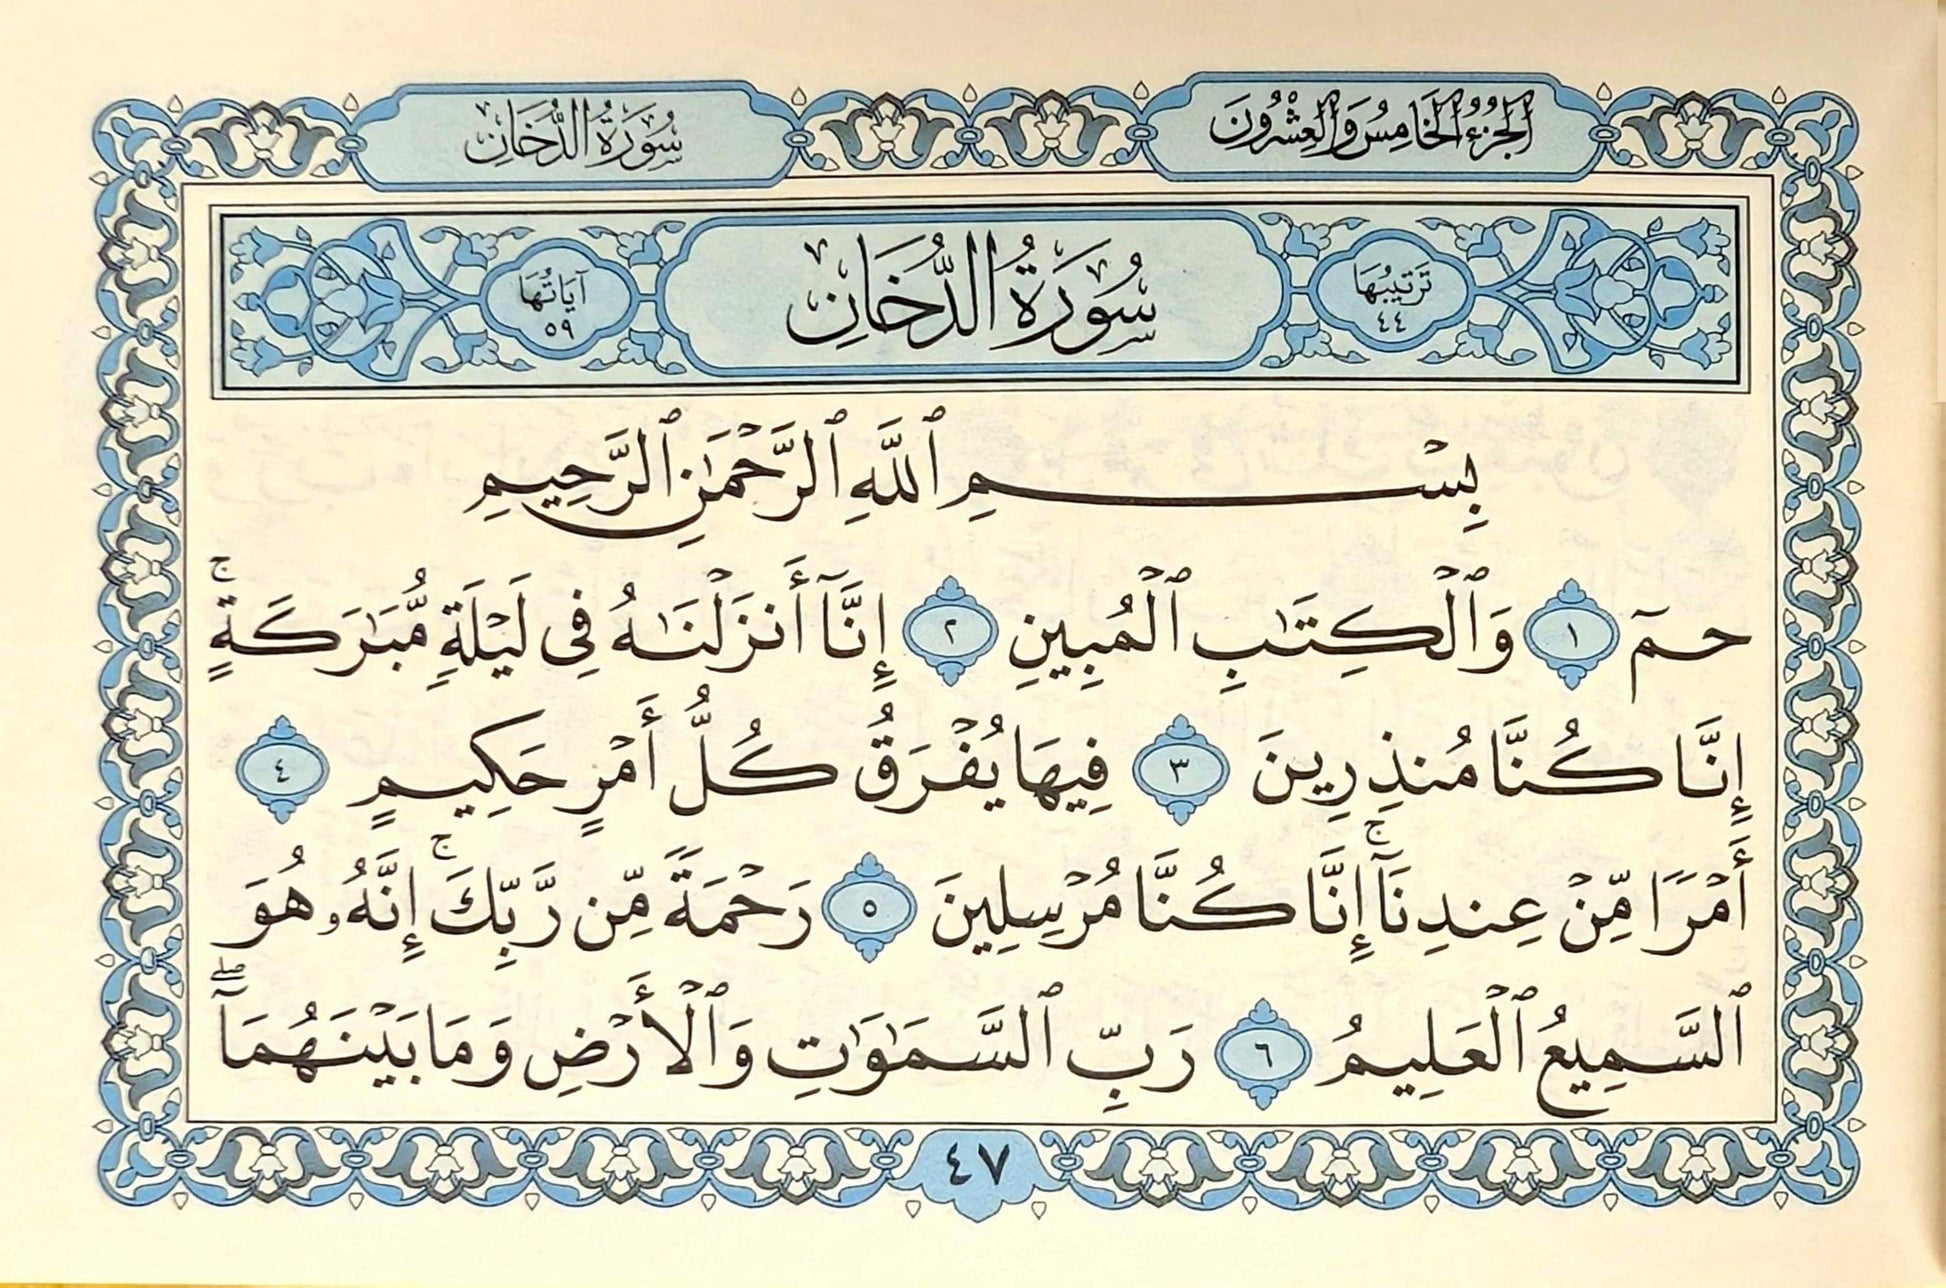 الجُزْءُ الخَامِسُ وَالعِشْرُونَ
سُورَةُ الدُّخَانِ
تَرْتِيبُهَا
٤٤
سُورَةُ الدُّخَانِ
آيَاتُهَا
٥٩
بِسْمِ ٱللَّهِ ٱلرَّحْمَٰنِ ٱلرَّحِيمِ
حمٓ ١ وَٱلْكِتَٰبِ ٱلْمُبِينِ ٢ إِنَّآ أَنزَلْنَٰهُ فِى لَيْلَةٍ مُّبَٰرَكَةٍۚ
إِنَّا كُنَّا مُنذِرِينَ ٣ فِيهَا يُفْرَقُ كُلُّ أَمْرٍ حَكِيمٍ ٤
أَمْرًا مِّنْ عِندِنَآۚ إِنَّا كُنَّا مُرْسِلِينَ ٥ رَحْمَةً مِّن رَّبِّكَۚ إِنَّهُۥ هُوَ
ٱلسَّمِيعُ ٱلْعَلِيمُ ٦ رَبِّ ٱلسَّمَٰوَٰتِ وَٱلْأَرْضِ وَمَا بَيْنَهُمَآۖ
٤٧